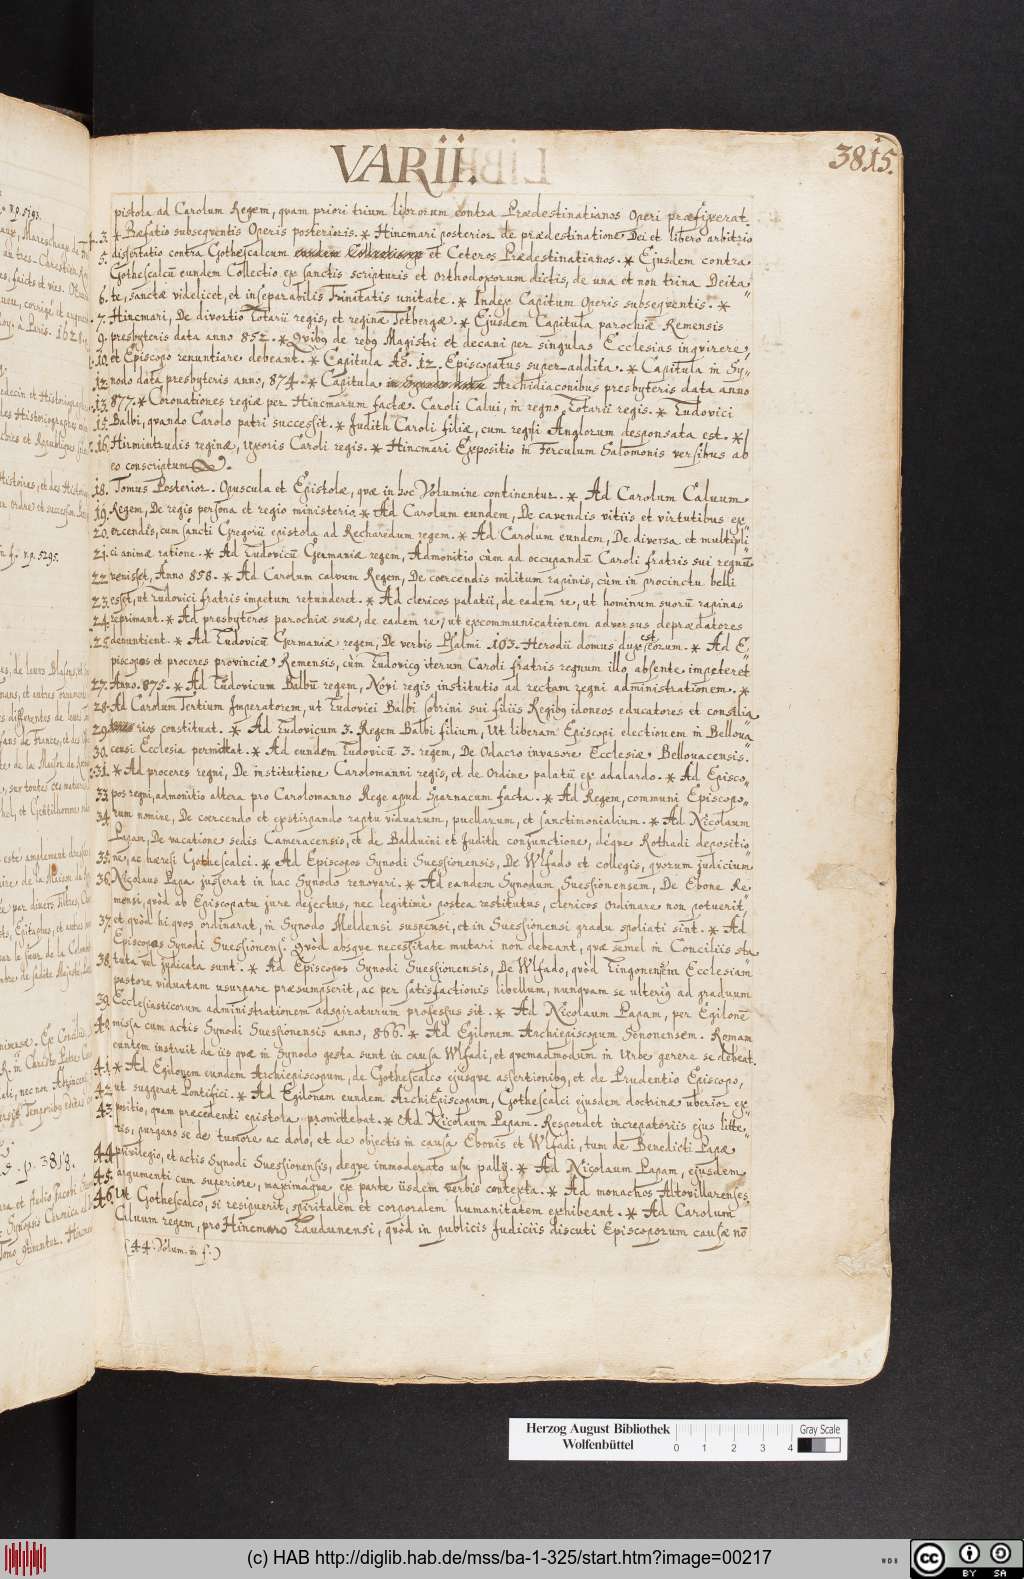 VARII.
3815.
pistola ad Carolum Regem, quam priori trium librorum contra Prædestinatianos Operi præfixerat.
3. * Præfatio subsequentis Operis posterioris. * Hincmari posterior de prædestinatione Dei et libero arbitrio
5. dissertatio contra Gothescalcum et Ceteros Prædestinatianos. * Ejusdem contra
Gothescalcū eundem Collectio ex sanctis scripturis et orthodoxorum dictis, de una et non trina Deita"
6. te, sanctæ videlicet, et inseparabilis Trinitatis unitate. * Index Capitum Operis subsequentis. *
7. Hincmari, De divortio Lotarii regis, et reginæ Tetbergæ. * Ejusdem Capitula parochiæ Remensis
9. presbyteris data anno 852. * Quibꝰ de rebꝰ Magistri et decani per singulas Ecclesias inquirere,
10. et Episcopo renuntiare debeant. * Capitula Aō. 12. Episcopatus super-addita. * Capitula in Sy"
12. nodo data presbyteris anno, 874. * Capitula Archidiaconibus presbyteris data anno
13. 877. * Coronationes regiæ per Hincmarum factæ. Caroli Calui, in regno Lotarii regis. * Ludovici
15. Balbi, quando Carolo patri successit. * Judith Caroli filiæ, cum regni Anglorum desponsata est. *
16. Hirmintrudis reginæ, uxoris Caroli regis. * Hincmari Expositio in Ferculum Salomonis versibus ab
eo conscriptum.
18. Tomus Posterior. Opuscula et Epistolæ, quæ in hoc Volumine continentur. * Ad Carolum Caluum
19. Regem, De regis persona et regio ministerio. * Ad Carolum eundem, De cavendis vitiis et virtutibus ex"
20. ercendis, cum sancti Gregorii epistola ad Recharedum regem. * Ad Carolum eundem, De diversa et multipli"
21. ci animæ ratione. * Ad Ludovicū Germaniæ regem, Admonitio cùm ad occupandū Caroli fratris sui regnū
22. venisset, Anno 858. * Ad Carolum calvum Regem, De coercendis militum rapinis, cùm in procinctu belli
23. esset, ut Ludovici fratris impetum retunderet. * Ad clericos palatii, de eadem re, ut hominum suorū rapinas
24. reprimant. * Ad presbyteros parochiæ suæ, de eadem re, ut excommunicationem adversus deprædatores
25. denuntient. * Ad Ludovicū Germaniæ regem, De verbis Psalmi. 103. Herodii domus dux est eorum. * Ad E"
piscopos et proceres provinciæ Remensis, cùm Ludovicꝰ iterum Caroli fratris regnum illo absente impeteret
27. Anno. 875. * Ad Ludovicum Balbū regem, Novi regis institutio ad rectam regni administrationem. *
28. Ad Carolum Tertium Imperatorem, ut Ludovici Balbi sobrini sui filiis Regibꝰ idoneos educatores et consilia"
29. rios constituat. * Ad Ludovicum 3. Regem Balbi filium, Ut liberam Episcopi electionem in Bellova"
30. censi Ecclesia permittat. * Ad eundem Ludovicū 3. regem, De Odacro invasore Ecclesiæ Bellovacensis.
31. * Ad proceres regni, De institutione Carolomanni regis, et de Ordine palatii ex adalardo. * Ad Episco"
33. pos regni, admonitio altera pro Carolomanno Rege apud Sparnacum facta. * Ad Regem, communi Episcopo"
34. rum nomine, De coercendo et exstirpando raptu viduarum, puellarum, et sanctimonialium. * Ad Nicolaum
Papam, De vacatione sedis Cameracensis, et de Balduini et Judith conjunctione, déque Rothadi depositio"
35. ne, ac hæresi Gothescalci. * Ad Episcopos Synodi Suessionensis, De Wlfado et collegis, quorum judicium
36. Nicolaus Papa jusserat in hac Synodo renovari. * Ad eandem Synodum Suessionensem, De Ebone Re"
mensi, quòd ab Episcopatu jure dejectus, nec legitimè postea restitutus, clericos ordinare non potuerit,
37. et quòd hi quos ordinarat, in Synodo Meldensi suspensi, et in Suessionensi gradu spoliati sint. * Ad
Episcopos Synodi Suessionens. Quòd absque necessitate mutari non debeant, quæ semel in Conciliis sta"
38. tuta vel judicata sunt. * Ad Episcopos Synodi Suessionensis, De Wlfado, quòd Lingonensem Ecclesiam
pastore viduatam usurpare præsumpserit, ac per satisfactionis libellum, nunquam se ulteriꝰ ad graduum
39. Ecclesiasticorum administrationem adspiraturum professus sit. * Ad Nicolaum Papam, per Egilonē
40. missa cum actis Synodi Suessionensis anno, 866. * Ad Egilonem Archiepiscopum Senonensem. Romam
euntem instruit de iis quæ in Synodo gesta sunt in causa Wlfadi, et quemadmodum in Urbe gerere se debeat.
41. * Ad Egilonem eundem Archiepiscopum, de Gothescalco ejusque assertionibꝰ, et de Prudentio Episcopo,
42. ut suggerat Pontifici. * Ad Egilonam eundem ArchiEpiscopum, Gothescalci ejusdem doctrinæ uberior ex"
43. positio, quam præcedenti epistola promittebat. * Ad Nicolaum Papam. Respondet increpatoriis ejus litte"
ris, purgans se de tumore ac dolo, et de objectis in causa Ebonis et Wlfadi, tum de Benedicti Papæ
44. privilegio, et actis Synodi Suessionensis, deque immoderato usu pallij. * Ad Nicolaum Papam, ejusdem
45. argumenti cum superiore, maximaque ex parte iisdem verbis contexta. * Ad monachos Altovillarenses
46. Ut Gothescalco, si resipuerit, spiritalem et corporalem humanitatem exhibeant. * Ad Carolum
Caluum regem, pro Hincmaro Laudunensi, quòd in publicis Judiciis discuti Episcoporum causæ nō
(44. Volum. in f.)
Herzog August Bibliothek
Wolfenbüttel
0 1 2 3 4
Gray Scale
(c) HAB http://diglib.hab.de/mss/ba-1-325/start.htm?image=00217
WDB
cc BY SA